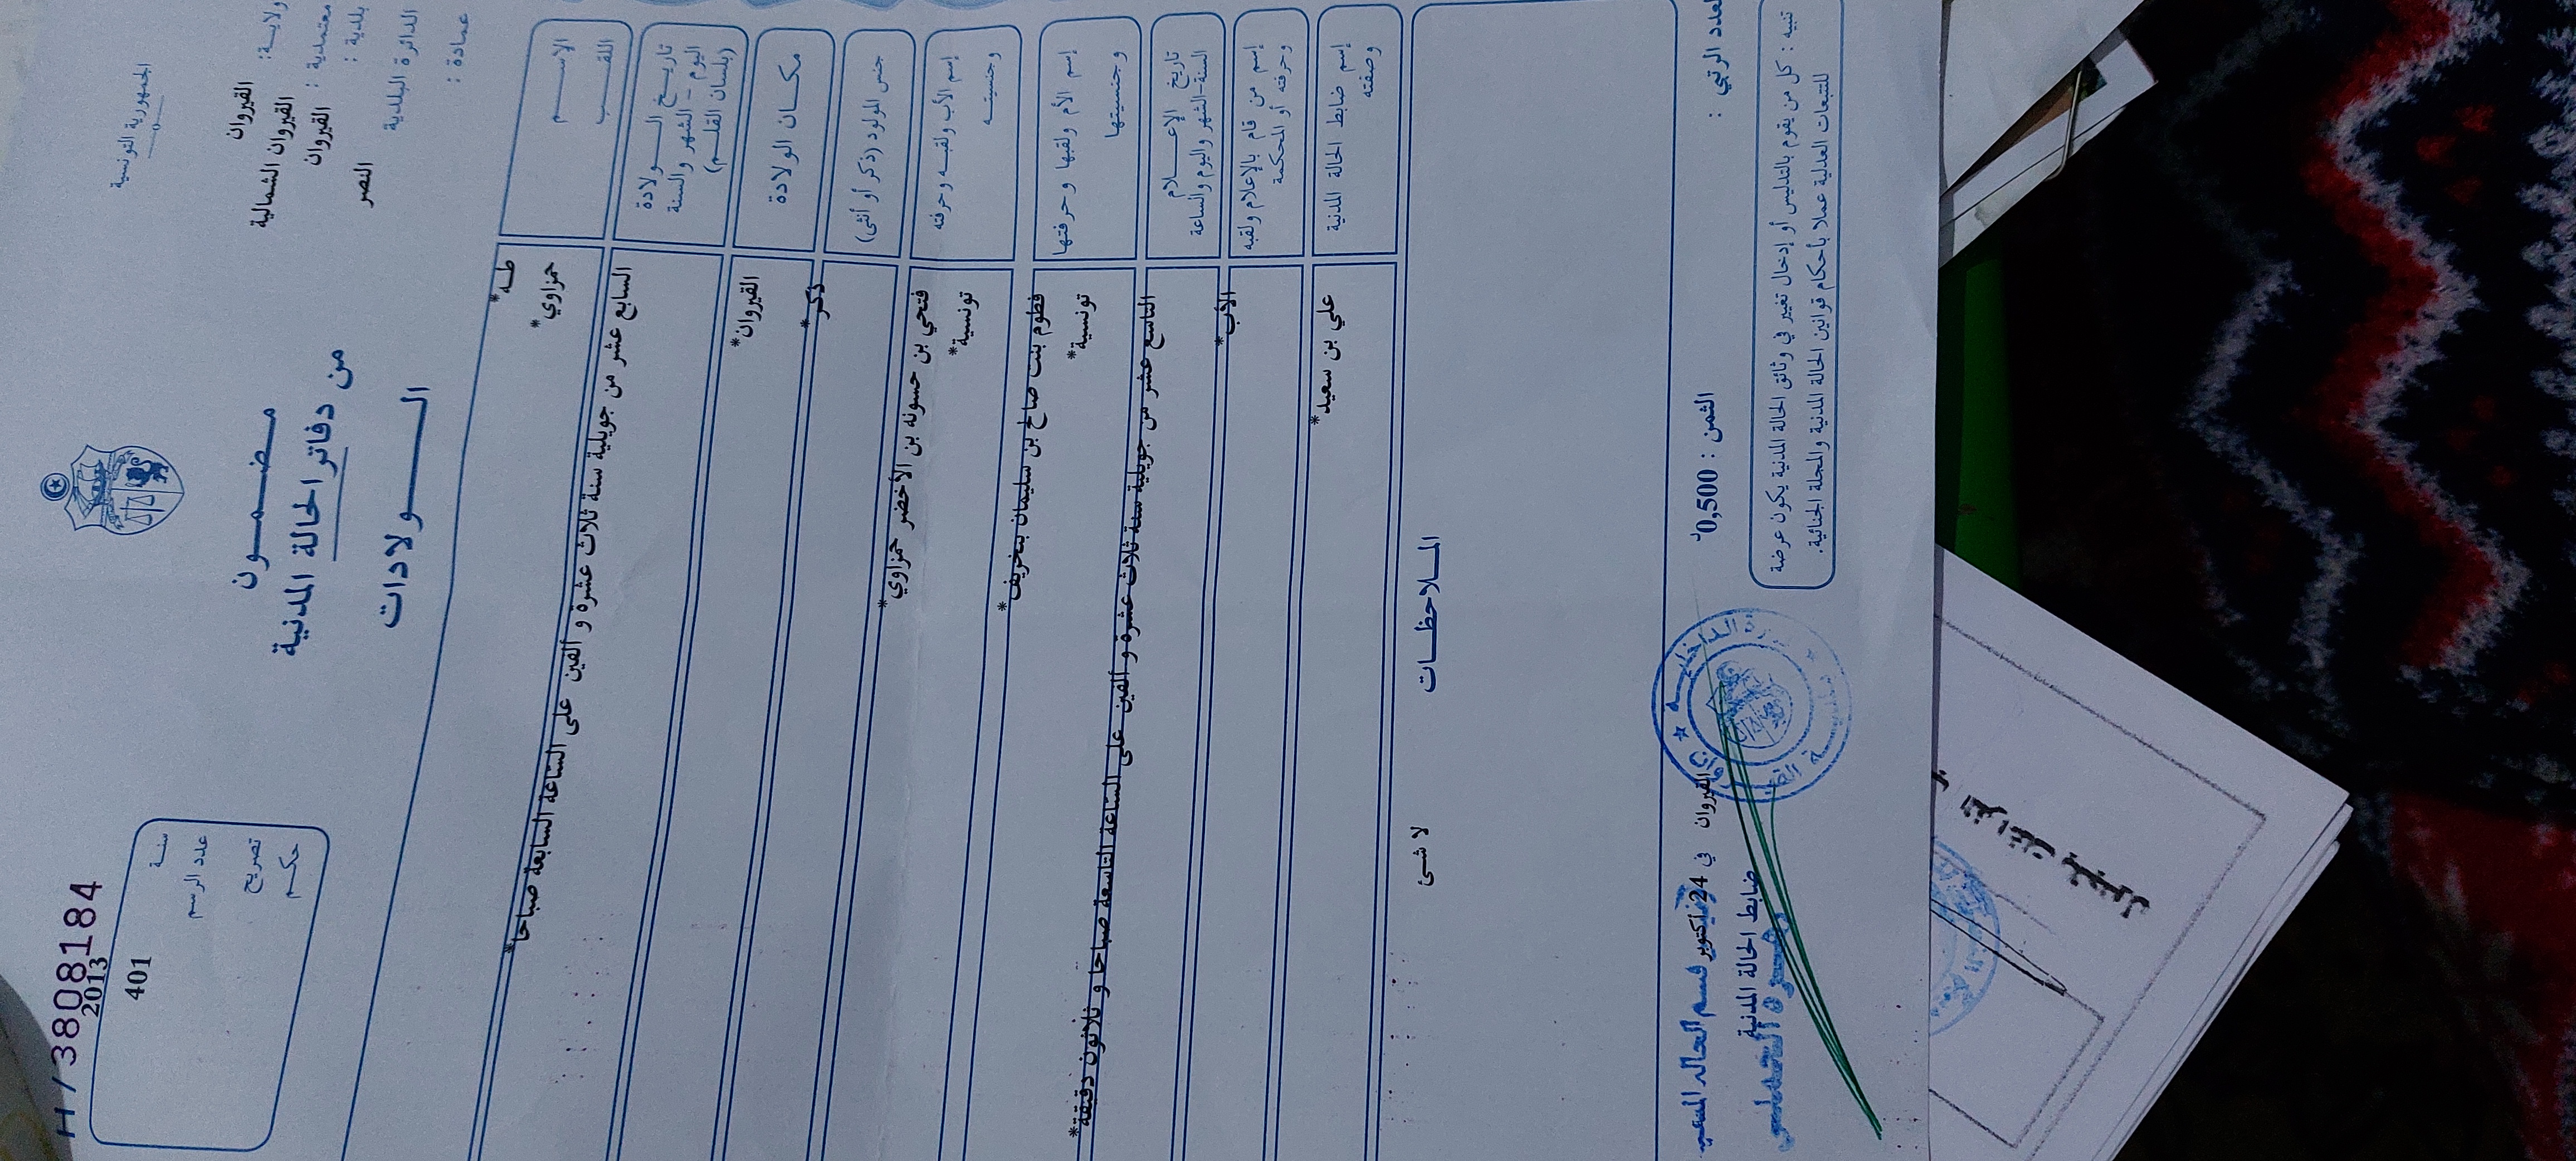 H / 3808184
2013
401
سنة
عدد الرسم
تصريح
حكم
الجمهورية التونسية
ولاية :
القيروان
معتمدية :
القيروان الشمالية
بلدية :
القيروان
الدائرة البلدية
النصر
عمادة :
مضمون
من دفاتر الحالة المدنية
الولادات
الاسم
طه*
اللقب
حمزاوي*
تاريخ الولادة
اليوم - الشهر والسنة
(بلسان القلم)
السابع عشر من جويلية سنة ثلاث عشرة و ألفين على الساعة السابعة صباحا*
مكان الولادة
القيروان*
جنس المولود (ذكر أو أنثى)
ذكر*
إسم الأب ولقبه وحرفته
فتحي بن حسونه بن الأخضر حمزاوي*
وجنسيته
تونسية*
إسم الأم ولقبها وحرفتها
فطوم بنت صالح بن سليمان بنخريف*
وجنسيتها
تونسية*
تاريخ الإعلام
السنة-الشهر واليوم والساعة
التاسع عشر من جويلية سنة ثلاث عشرة و ألفين على الساعة التاسعة صباحا و ثلاثون دقيقة*
إسم من قام بالإعلام ولقبه
وحرفته أو المحكمة
الأب*
إسم ضابط الحالة المدنية
وصفته
علي بن سعيد*
الملاحظات
لا شئ
العدد الرتبي :
الثمن : 0,500د
القيروان في 24 أكتوبر
ضابط الحالة المدنية
تنبيه : كل من يقوم بالتدليس أو إدخال تغيير في وثائق الحالة المدنية يكون عرضة
للتتبعات العدلية عملا بأحكام قوانين الحالة المدنية والمجلة الجنائية.